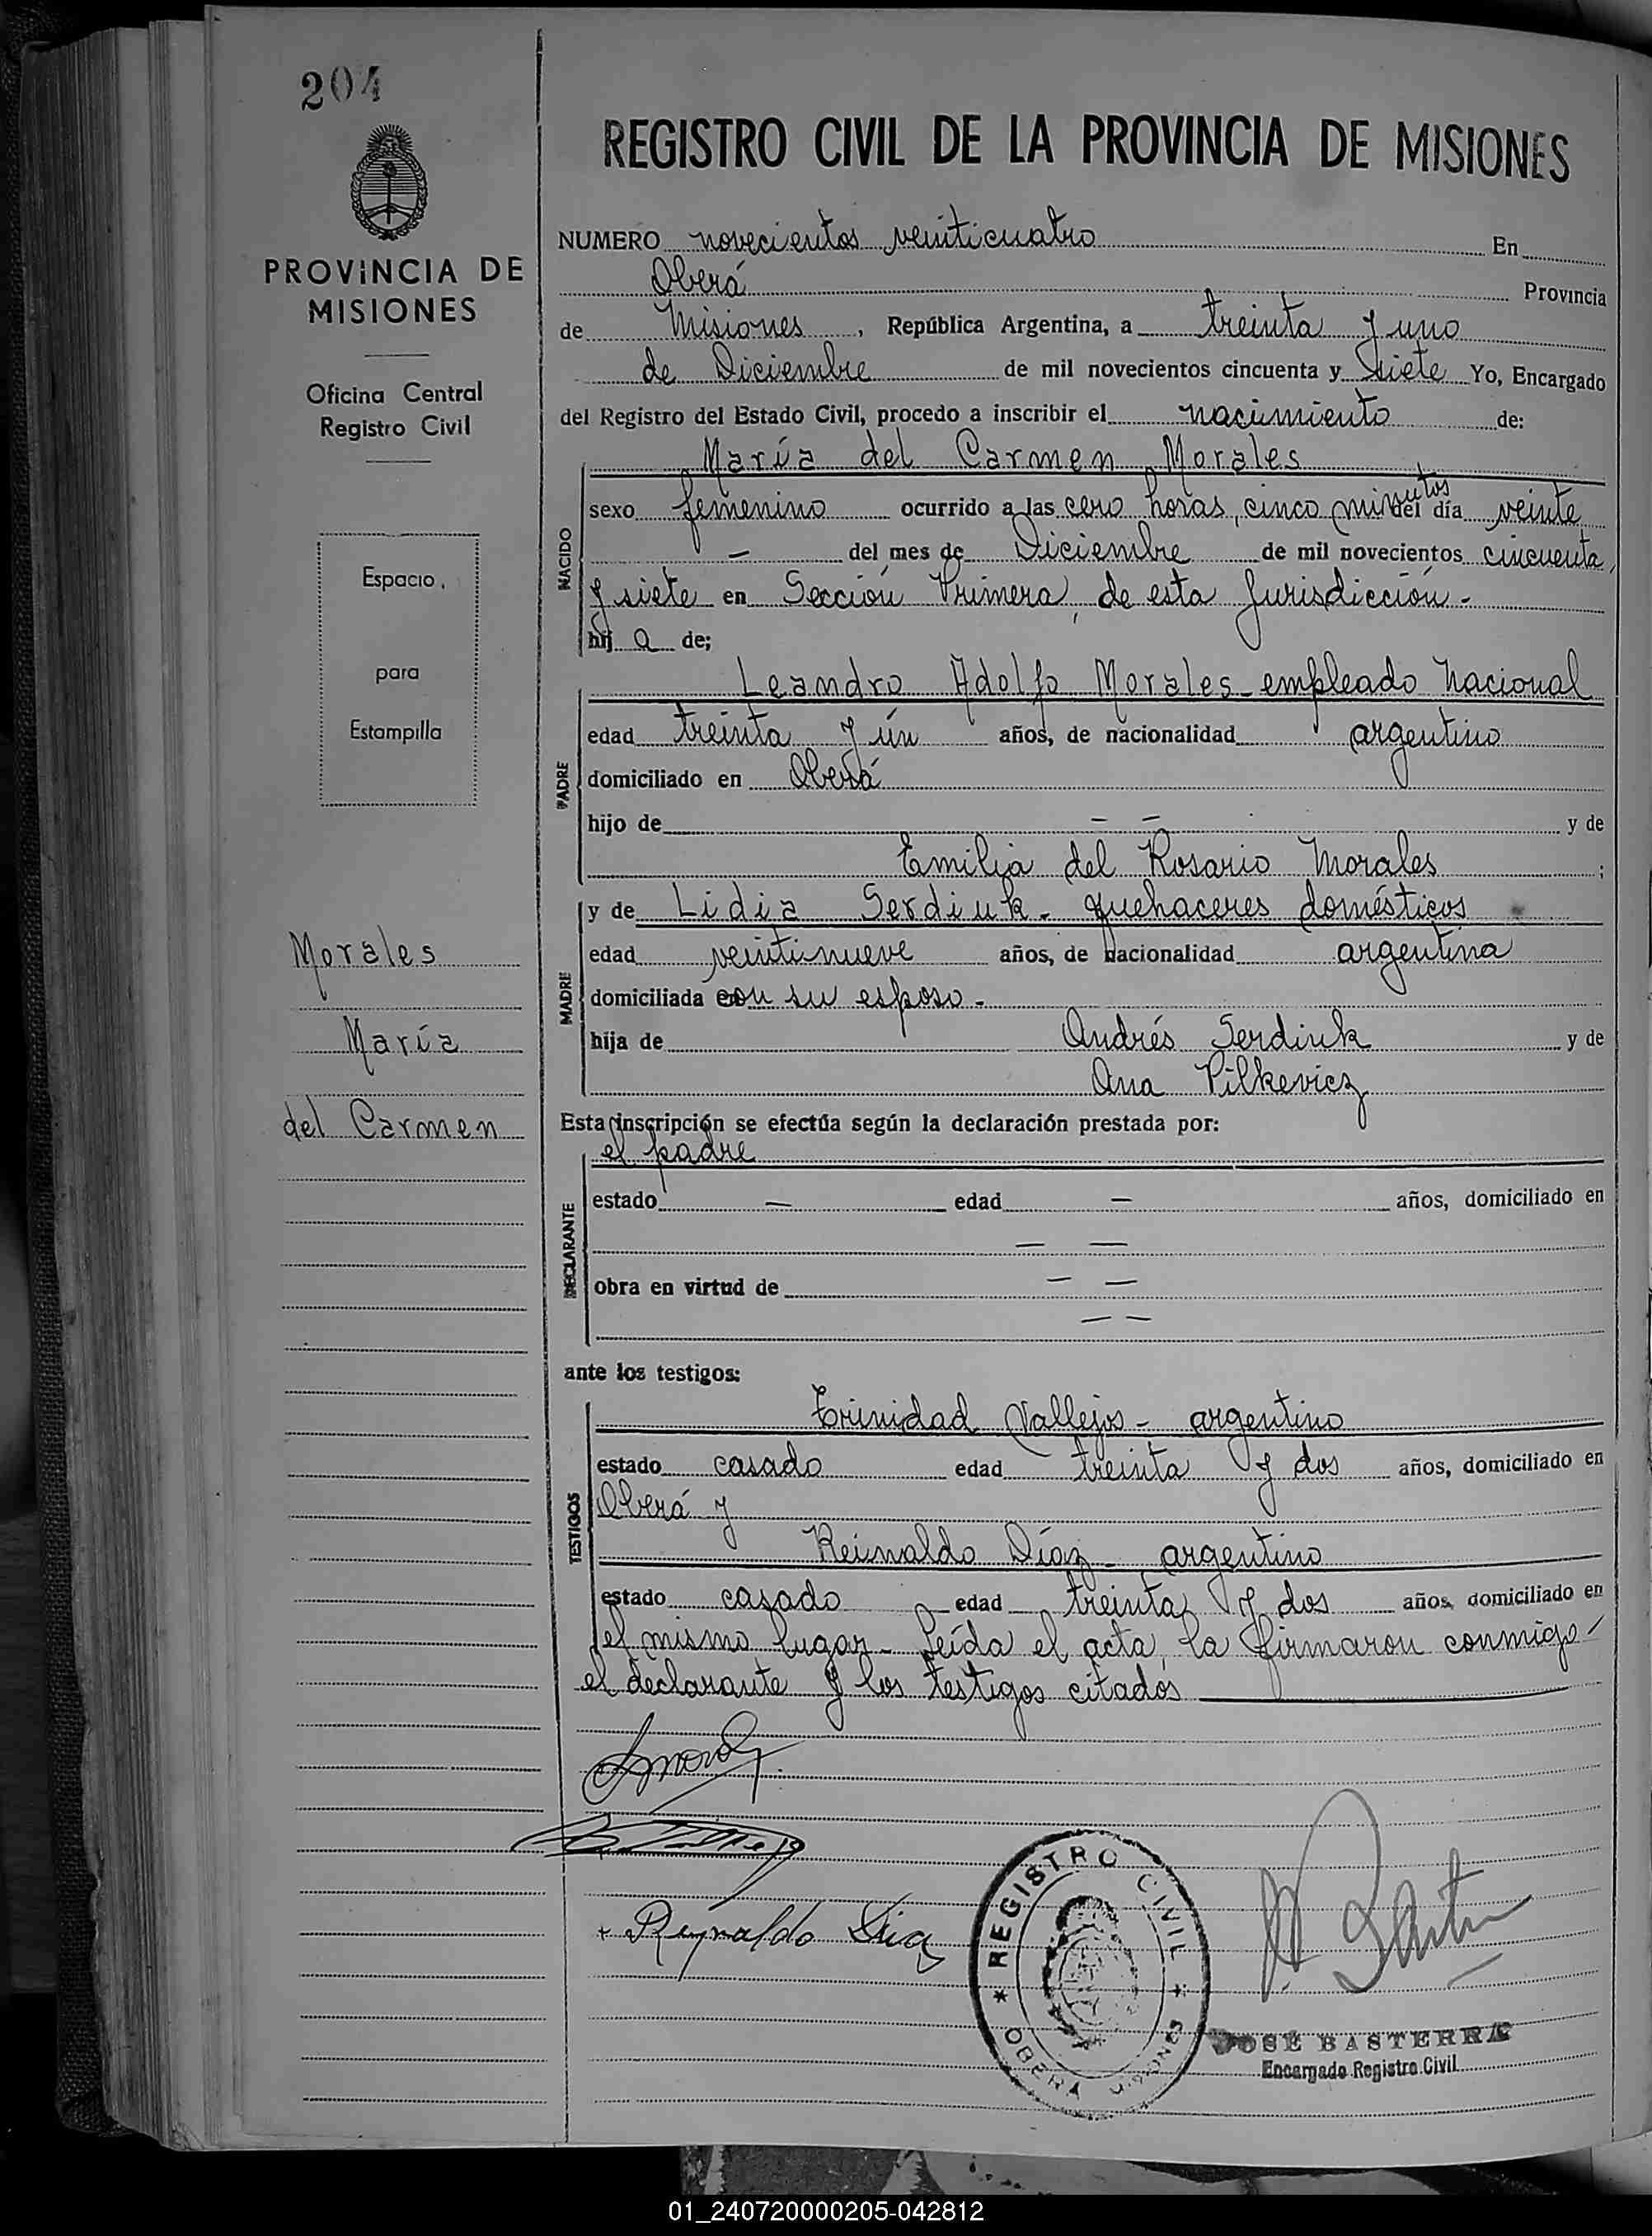 204
PROVINCIA DE
MISIONES
Oficina Central
Registro Civil
Espacio
para
Estampilla
Morales
María
del Carmen
REGISTRO CIVIL DE LA PROVINCIA DE MISIONES
NUMERO novecientos veinticuatro En
Oberá Provincia
de Misiones, República Argentina, a treinta y uno
de Diciembre de mil novecientos cincuenta y siete Yo, Encargado
del Registro del Estado Civil, procedo a inscribir el nacimiento de:
María del Carmen Morales
NACIDO
sexo femenino ocurrido a las cero horas, cinco minutos del día veinte
— del mes de Diciembre de mil novecientos cincuenta
y siete en Sección Primera, de esta Jurisdicción -
hij a de;
Leandro Adolfo Morales - empleado nacional
PADRE
edad treinta y ún años, de nacionalidad argentino
domiciliado en Oberá
hijo de — — y de
Emilia del Rosario Morales ;
y de Lidia Serdiuk - quehaceres domésticos
MADRE
edad veintinueve años, de nacionalidad argentina
domiciliada con su esposo -
hija de Andrés Serdiuk y de
Ana Pilkevicz
Esta inscripción se efectúa según la declaración prestada por:
el padre
DECLARANTE
estado — edad — años, domiciliado en
— —
obra en virtud de — —
— —
ante los testigos:
Trinidad Vallejos - argentino
TESTIGOS
estado casado edad treinta y dos años, domiciliado en
Oberá y
Reinaldo Díaz - argentino
estado casado edad treinta y dos años, domiciliado en
el mismo lugar - Leída el acta, la firmaron conmigo
el declarante y los testigos citados
Reynaldo Diaz
REGISTRO CIVIL
OBERA MISIONES
JOSE BASTERRA
Encargado Registro Civil
01_240720000205-042812